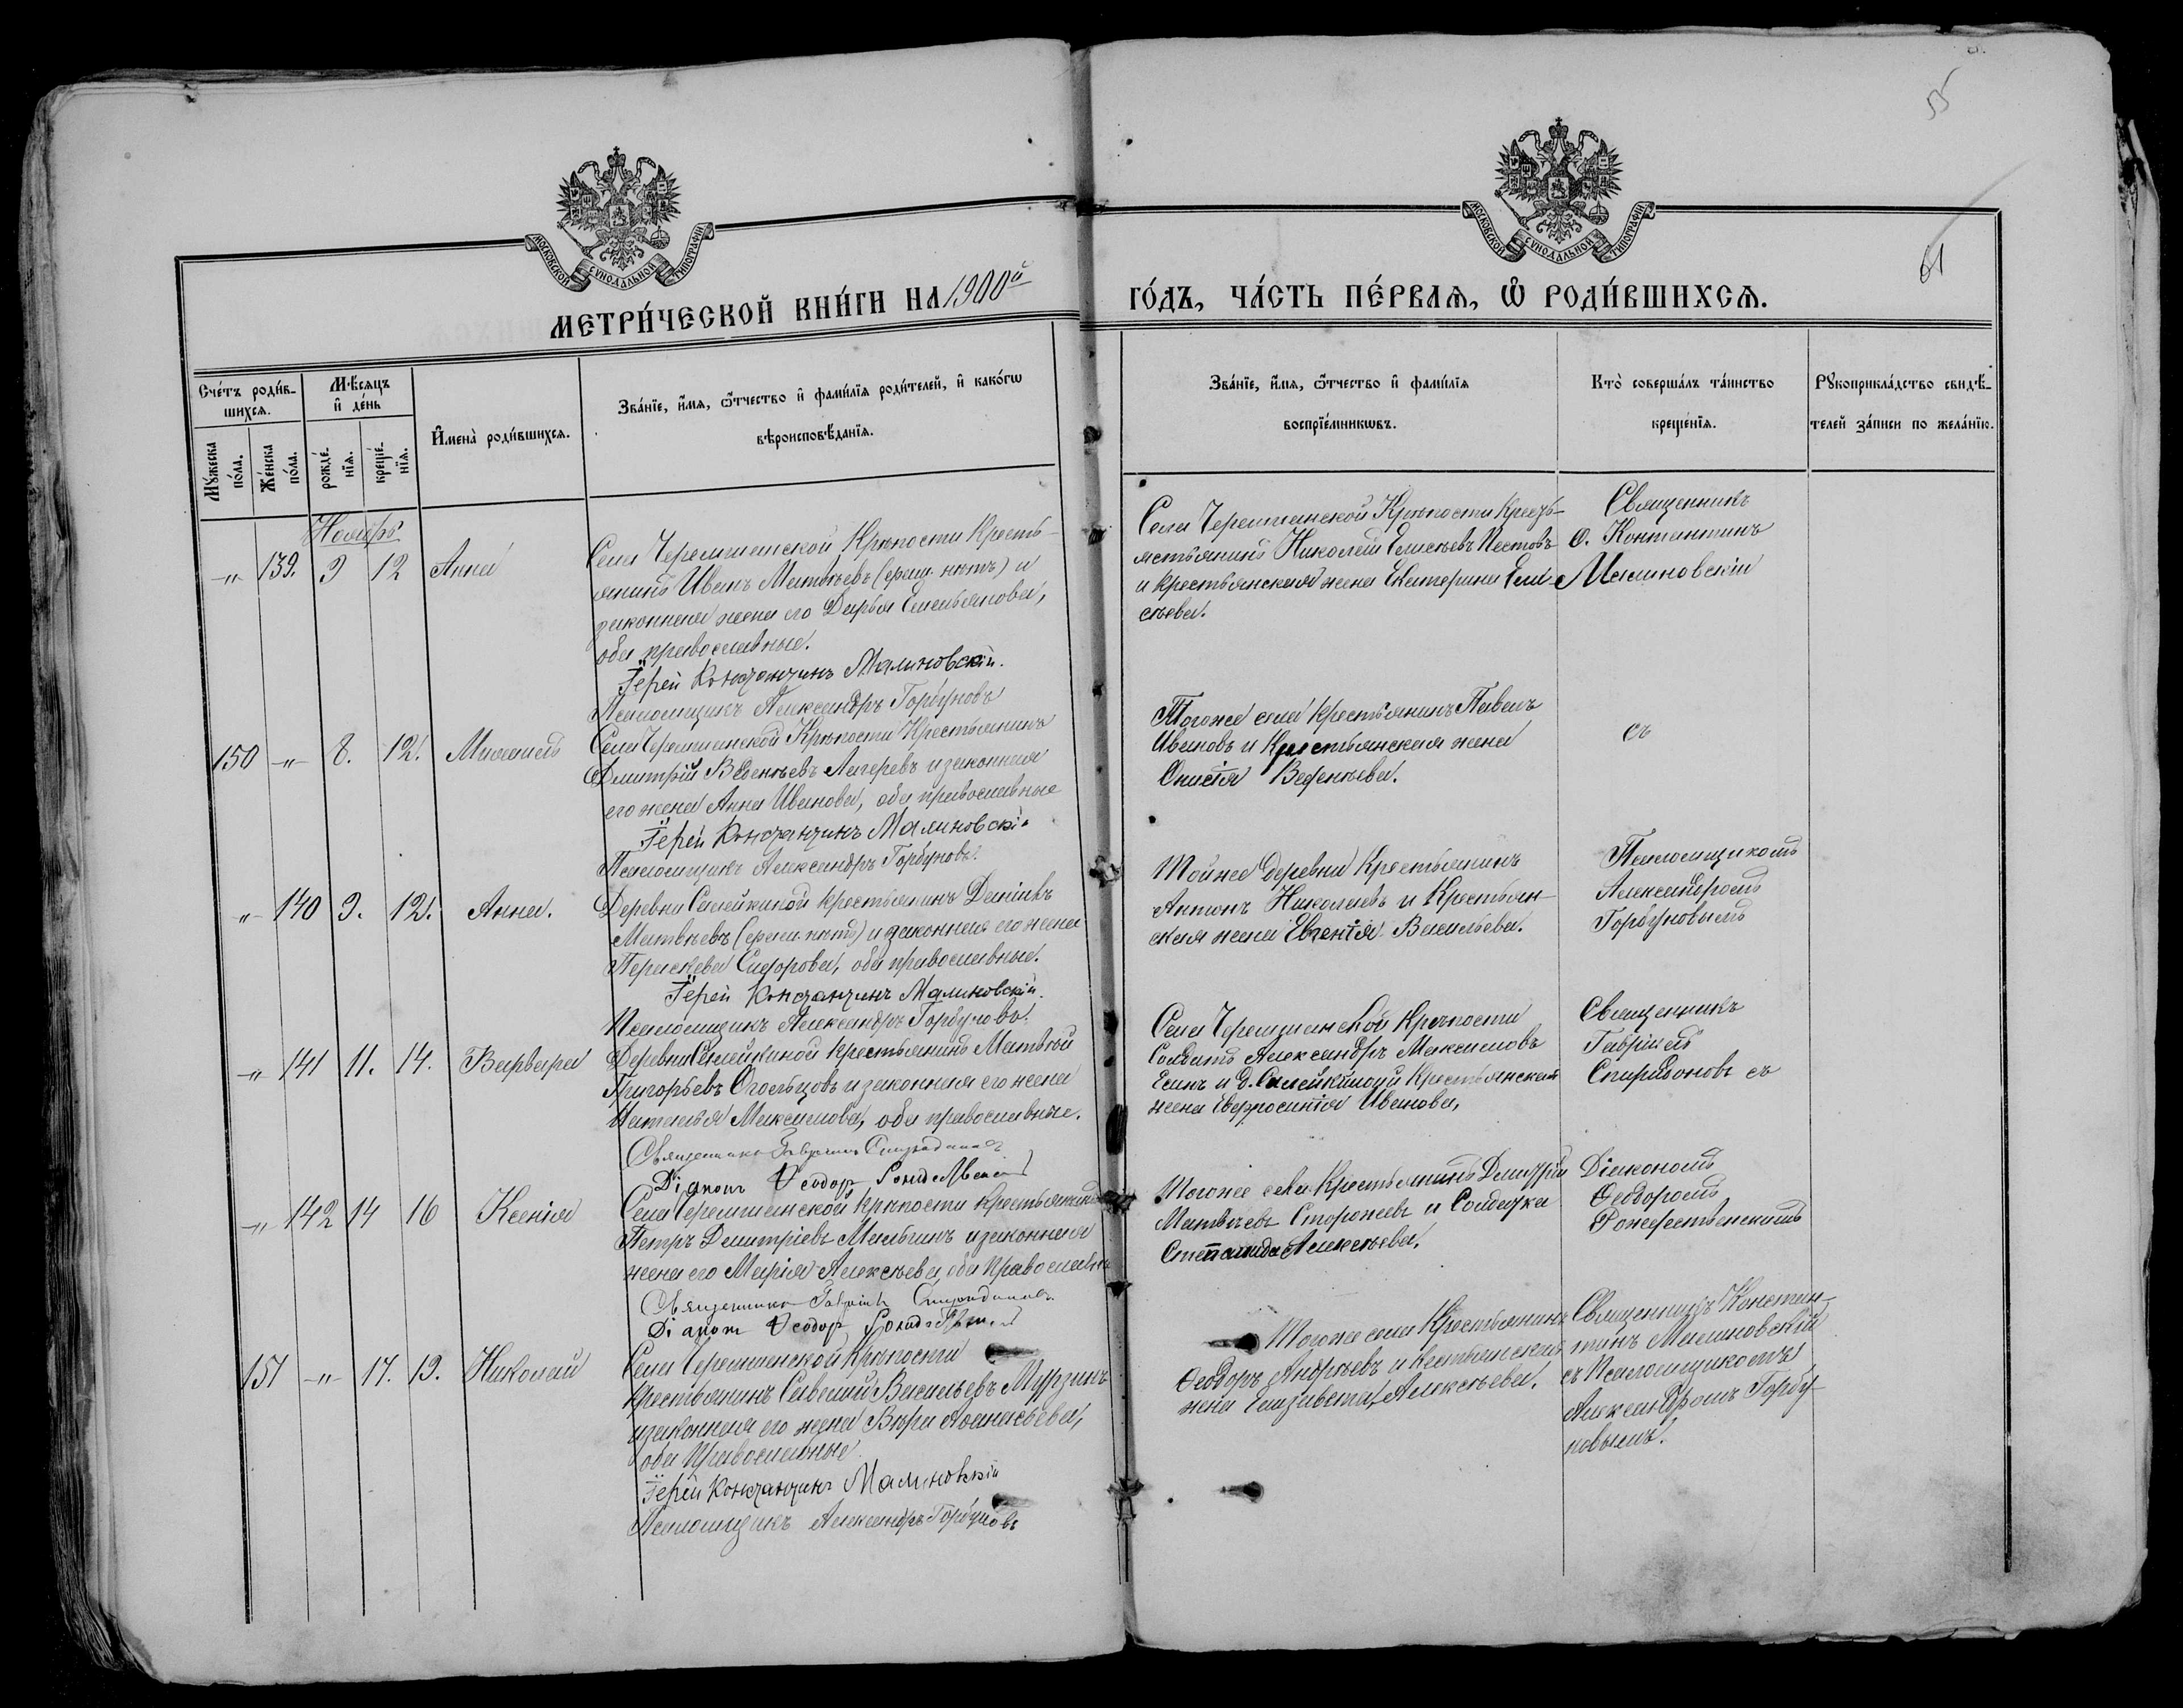 55
61
МОСКОВСКОЙ СѴНОДАЛЬНОЙ ТИПОГРАФІИ
МОСКОВСКОЙ СѴНОДАЛЬНОЙ ТИПОГРАФІИ
МЕТРИ́ЧЕСКОЙ КНИ́ГИ НА 1900й
ГО́ДЪ, ЧА́СТЬ ПЕ́РВАѦ, Ѡ҆ РОДИ́ВШИХСѦ.
Сче́тъ роди́в-
шихсѧ.
Мѣ́сяцъ
и҆ де́нь
Мꙋ́жеска
по́ла.
Же́нска
по́ла.
рожде́-
нїѧ.
креще́-
нїѧ.
И҆мена̀ роди́вшихсѧ.
Зва́нїе, и҆́мѧ, ѻ҆́тчество и҆ фамѝлїѧ роди́телей, и҆ како́гѡ
вѣроисповѣ́данїѧ.
Зва́нїе, и҆́мѧ, ѻ҆́тчество и҆ фамѝлїѧ
воспрїе́мникѡвъ.
Кто̀ соверша́лъ та́инство
креще́нїѧ.
Рꙋкоприкла́дство свидѣ́-
телей за́писи по жела́нїю.
Ноябрь
-„- 139. 9 12 Анна
Села Черемшанской Крѣпости Кресть-
янинъ Иванъ Матвѣевъ (фам. нѣтъ) и
законная жена его Дарья Емельянова,
оба православные.
Іерей Константинъ Малиновскій.
Псаломщикъ Александръ Горбуновъ
Села Черемшанской Крѣпости Кресть-
Николай Елисѣевъ Пестовъ
и крестьянская жена Екатерина Ели-
сѣева.
Священникъ
о. Контантинъ
Малиновскій
150 -„- 8. 12. Михаилъ
Села Черемшанской Крѣпости Крестьянинъ
Димитрій и законная
его жена Анна Иванова, оба православные
Іерей Константинъ Малиновскій
Псаломщикъ Александръ Горбуновъ.
Тогоже села крестьянинъ Павелъ
Ивановъ и Крестьянская жена
Онисія
съ
„- 140 9. 12. Анна.
Деревни Салейкиной крестьянинъ Даніилъ
Матвѣевъ (фам. нѣтъ) и законная его жена
Параскева Сидорова, оба православные.
Іерей Константинъ Малиновскій.
Псаломщикъ Александръ Горбуновъ.
Тойже деревни Крестьянинъ
Антонъ Николаевъ и Крестьян-
ская жена Евгенія Васильева.
Псаломщикомъ
Александромъ
Горбуновымъ
-„- 141 11. 14. Варвара
Деревни Салейкиной крестьянинъ Матвѣй
Григорьевъ Огольцовъ и законная его жена
Наталья Максимова, оба православные.
Священникъ Гавріилъ Спиридоновъ
Діаконъ Ѳеодоръ
Села Черемшанской Крѣпости
Солдатъ Александръ Максимовъ
Есинъ и д. Салейкиной Крестьянская
жена Евфросинія Иванова,
Священникъ
Гавріилъ
Спиридоновъ съ
-„- 142 14 16 Ксенія
Села Черемшанской Крѣпости крестьянинъ
Петръ Димитріевъ и законная
жена его Марія Алексѣева, оба Православные
Священникъ Гавріилъ Спиридоновъ
Діаконъ Ѳеодоръ
Тогоже села Крестьянинъ Димитрій
Матвѣевъ Сторожевъ и Солдатка
Степанида Алексѣева.
Діакономъ
Ѳеодоромъ
Рождественскимъ
151 -„- 17. 19. Николай
Села Черемшанской Крѣпости
крестьянинъ Савелій Васильевъ Мурзинъ
и законная его жена Вѣра Аѳанасьева,
оба Православные.
Іерей Константинъ Малиновскій
Псаломщикъ Александръ Горбуновъ
Тогоже села Крестьянинъ
Ѳеодоръ Андреевъ и Кестьянская
жена Елизавета Алексѣева.
Священникъ Констан-
тинъ Малиновскій
съ Псаломщикомъ
Александромъ Горбу-
новымъ.